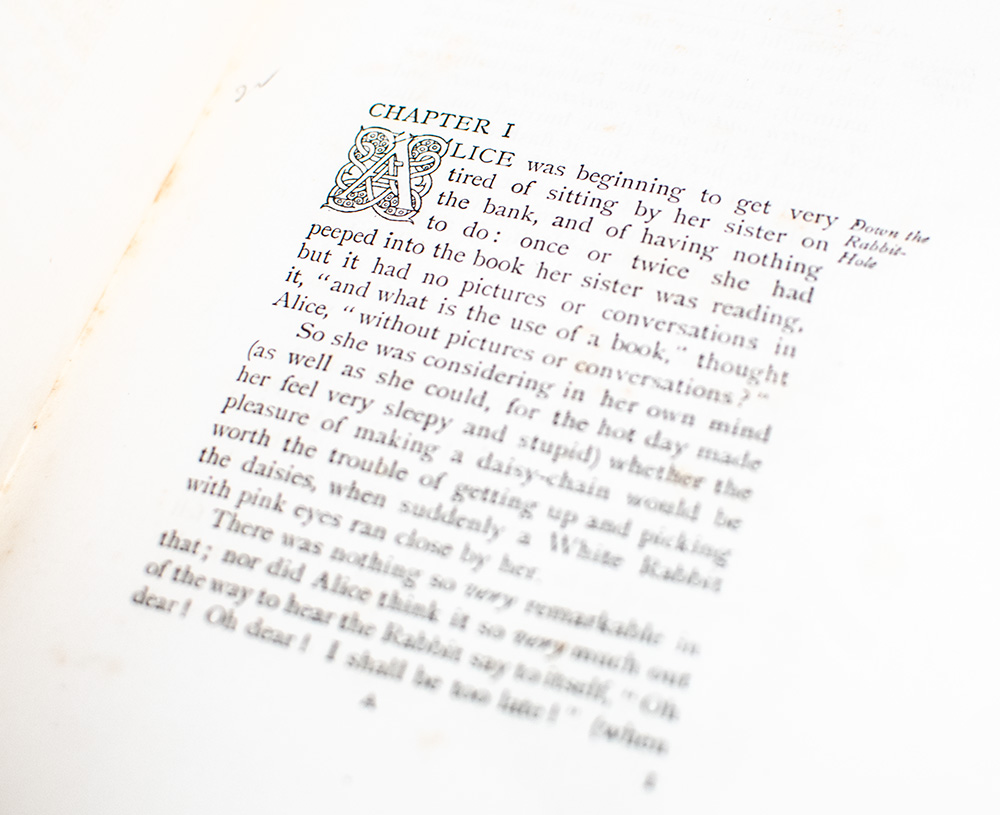 CHAPTER I
ALICE was beginning to get very
tired of sitting by her sister on
the bank, and of having nothing
to do: once or twice she had
peeped into the book her sister was reading,
but it had no pictures or conversations in
it, "and what is the use of a book," thought
Alice, "without pictures or conversations?"
So she was considering in her own mind
(as well as she could, for the hot day made
her feel very sleepy and stupid) whether the
pleasure of making a daisy-chain would be
worth the trouble of getting up and picking
the daisies, when suddenly a White Rabbit
with pink eyes ran close by her.
There was nothing so very remarkable in
that; nor did Alice think it so very much out
of the way to hear the Rabbit say to itself, "Oh
dear! Oh dear! I shall be too late!" (when
Down the
Rabbit-
Hole